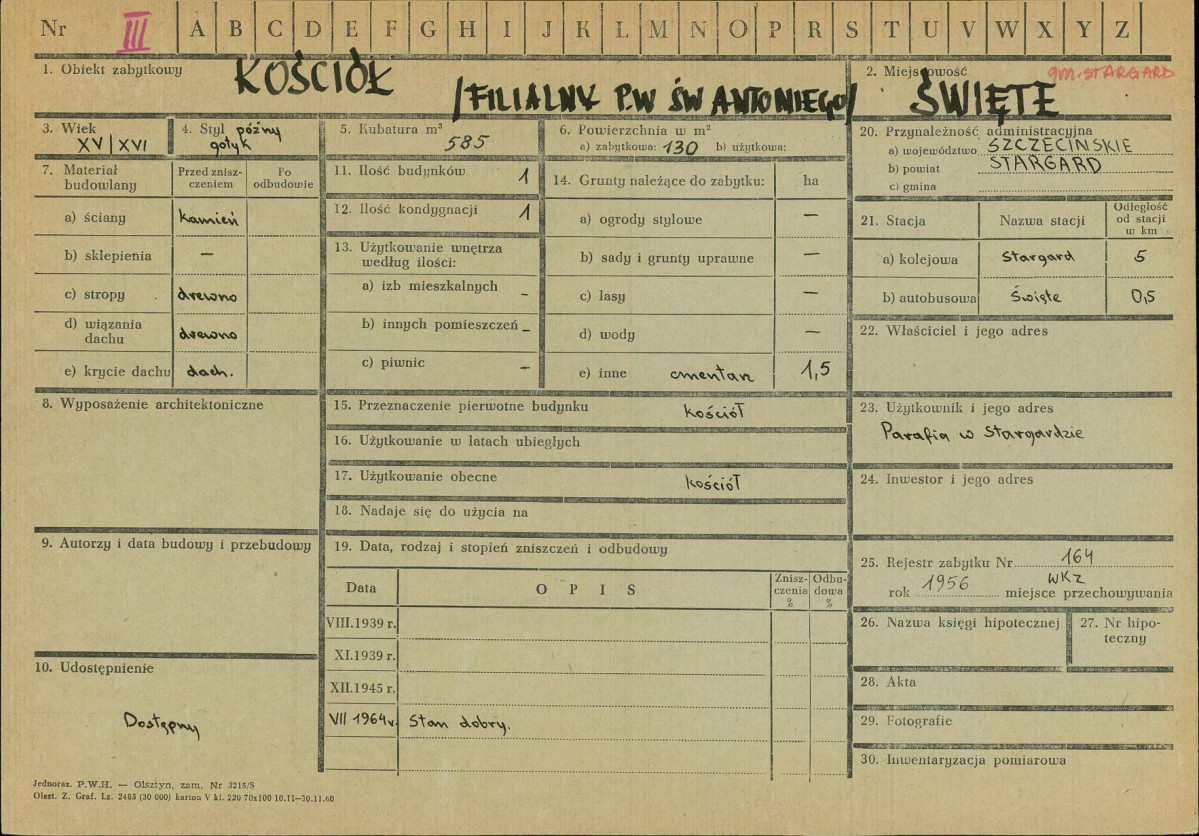 Nr III A B C D E F G H I J K L M N O P R S T U V W X Y Z
1. Obiekt zabytkowy KOŚCIÓŁ
/FILIALNY P.W ŚW ANTONIEGO/
2. Miejscowość gm. STARGARD
ŚWIĘTE
3. Wiek
XV/XVI
4. Styl późny
gotyk
5. Kubatura m³
585
6. Powierzchnia w m²
a) zabytkowa: 130 b) użytkowa:
7. Materiał
budowlany
Przed znisz-
czeniem
Po
odbudowie
a) ściany kamień
b) sklepienia —
c) stropy drewno
d) wiązania
dachu drewno
e) krycie dachu dach.
8. Wyposażenie architektoniczne
9. Autorzy i data budowy i przebudowy
10. Udostępnienie
Dostępny
11. Ilość budynków 1
12. Ilość kondygnacji 1
13. Użytkowanie wnętrza
według ilości:
a) izb mieszkalnych –
b) innych pomieszczeń –
c) piwnic –
14. Grunty należące do zabytku: ha
a) ogrody stylowe —
b) sady i grunty uprawne —
c) lasy —
d) wody —
e) inne cmentarz 1,5
15. Przeznaczenie pierwotne budynku kościół
16. Użytkowanie w latach ubiegłych
17. Użytkowanie obecne kościół
18. Nadaje się do użycia na
19. Data, rodzaj i stopień zniszczeń i odbudowy
Data OPIS
Znisz-
czenia
%
Odbu-
dowa
%
VIII.1939 r.
XI.1939 r.
XII.1945 r.
VII 1964 r. Stan dobry.
20. Przynależność administracyjna
a) województwo SZCZECIŃSKIE
b) powiat STARGARD
c) gmina
21. Stacja Nazwa stacji
Odległość
od stacji
w km
a) kolejowa Stargard 5
b) autobusowa Święte 0,5
22. Właściciel i jego adres
23. Użytkownik i jego adres
Parafia w Stargardzie
24. Inwestor i jego adres
25. Rejestr zabytku Nr 164
rok 1956 WKZ miejsce przechowywania
26. Nazwa księgi hipotecznej
27. Nr hipo-
teczny
28. Akta
29. Fotografie
30. Inwentaryzacja pomiarowa
Jednoraz. P.W.H. — Olsztyn, zam. Nr 3215/S
Olszt. Z. Graf. Lz. 2485 (30 000) karton V kl. 220 70x100 10.11—30.11.60